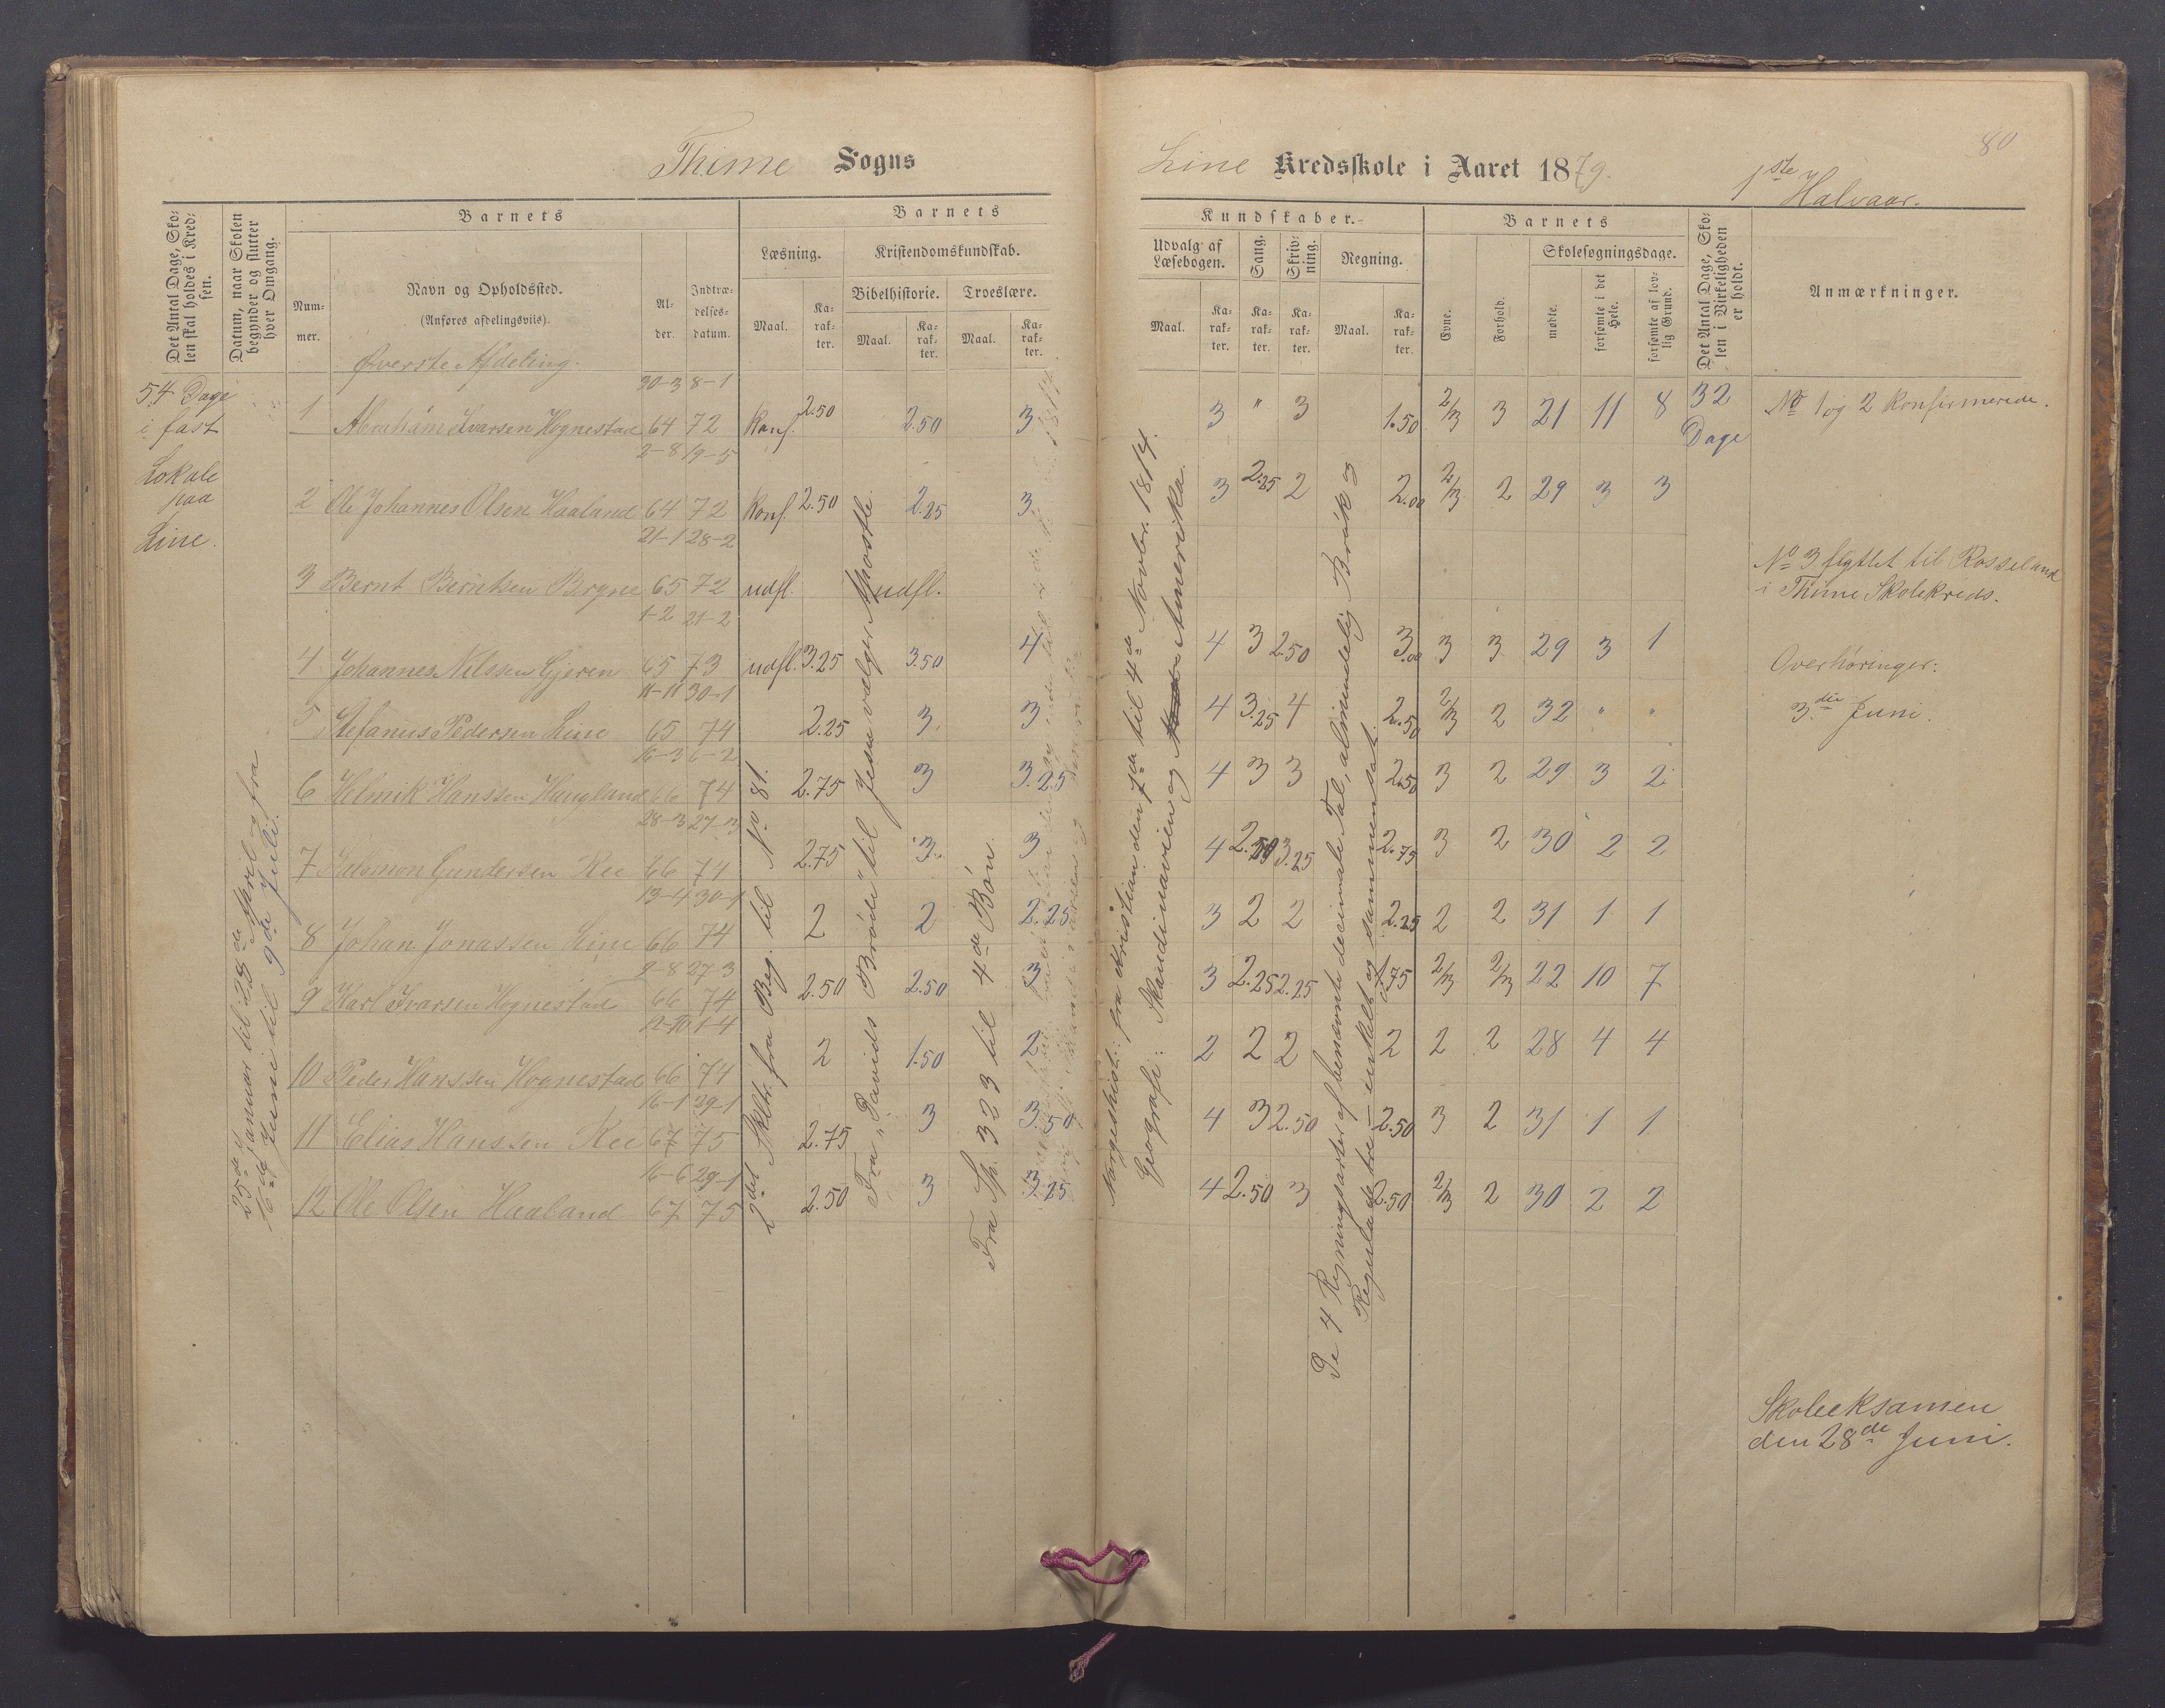 80
Thime Sogns
Line Kredsskole i Aaret 1879.
1ste Halvaar.
Det Antal Dage, Sko-
len skal holdes i Kred-
sen.
Datum, naar Skolen
begynder og slutter
hver Omgang.
Barnets
Num-
mer.
Navn og Opholdssted.
(Anføres afdelingsviis).
Øverste Afdeling.
Al-
der.
Indtræ-
delses-
datum.
Barnets
Læsning.
Maal.
Ka-
rak-
ter.
Kristendomskundskab.
Bibelhistorie.
Troeslære.
Maal.
Ka-
rak-
ter.
Maal.
Ka-
rak-
ter.
Kundskaber.
Udvalg af
Læsebogen.
Sang.
Skriv-
ning.
Regning.
Maal.
Ka-
rak-
ter.
Ka-
rak-
ter.
Ka-
rak-
ter.
Maal.
Ka-
rak-
ter.
Barnets
Evne.
Forhold.
Skolesøgningsdage.
mødte.
forsømte i det
Hele.
forsømte af lov-
lig Grund.
Det Antal Dage, Sko-
len i Virkeligheden
er holdt.
Anmærkninger.
54 Dage
i fast
Lokale
paa
Line.
25de Januar til 28de April og fra
16de Juni til 9de Juli.
30-3 8-1
1 Abraham Ivarsen Hognestad 64 72 Konf. 2.50 2.50 3 3 " 3 1.50 2/3 3 21 11 8 32
Dage
2-8 19-5
2 Ole Johannes Olsen Haaland 64 72 Konf. 2.50 2.25 3 3 2.25 2 2.00 2/3 2 29 3 3
21-1 28-2
3 Bernt Berntsen Brygne 65 72 udfl. udfl.
1-2 21-2
4 Johannes Nilssen Gjeren 65 73 udfl. 3.25 3.50 4 4 3 2.50 3.00 3 3 29 3 1
11-11 30-1
5 Stefanus Pedersen Line 65 74 2.25 3 3 4 3.25 4 2.50 2/3 2 32 " "
16-3 6-2
6 Helmik Hanssen Haugland 66 74 2.75 3 3.25 4 3 3 2.50 3 2 29 3 2
28-3 27-3
7 Salomon Gundersen Ree 66 74 2.75 3 3 4 2.50 3.25 2.75 3 2 30 2 2
13-4 30-1
8 Johan Jonassen Line 66 74 2 2 2.25 3 2 2 2.25 2 2 31 1 1
9-8 27-3
9 Karl Ivarsen Hognestad 66 74 2.50 2.50 3 3 2.25 2.25 1.75 2/3 2/3 22 10 7
12-10 1-4
10 Peder Hanssen Hognestad 66 74 2 1.50 2 2 2 2 2 2 2 28 4 4
16-1 29-1
11 Elias Hanssen Ree 67 75 2.75 3 3.50 4 3 2.50 2.50 3 2 31 1 1
16-6 29-1
12 Ole Olsen Haaland 67 75 2.50 3 3.25 4 2.50 3 2.50 2/3 2 30 2 2
2det Skltr. fra Beg. til No 81.
Fra "Davids Brøde" til Jesu vælger Apostle.
Fra Sp. 323 til 4de Bøn.
Norgeshist.: fra Kristian den 7de til 4de Novbr. 1814.
Geografi: Skandinavien og Amerika.
De 4 Regningsarter af benævnte decimale Tal, almindelig Brøk og
Reguladetri – enkelt og sammensat.
No 1 og 2 Konfirmerede.
No 3 flyttet til Rosseland
i Thime Skolekreds.
Overhøringer:
3die Juni.
Skoleeksamen
den 28de Juni.